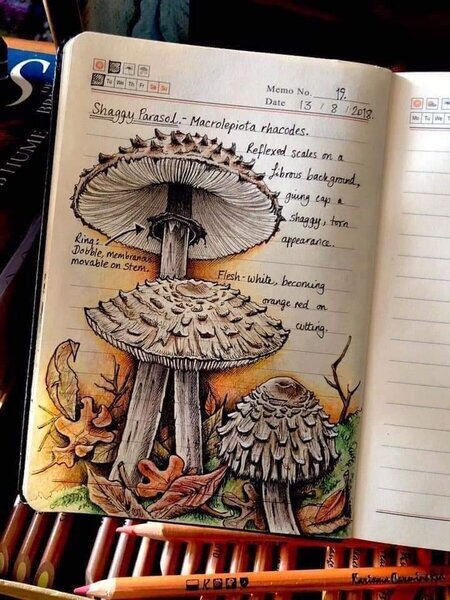 Memo No. 19.
Tu We Th Fr Sa Su
Date 13 / 8 / 2018.
Shaggy Parasol. - Macrolepiota rhacodes.
Reflexed scales on a
fibrous background,
giving cap a
shaggy, torn
appearance.
Ring:
Dobble, membranous
movable on stem.
Flesh - white, becoming
orange red on
cutting.
Mo Tu We Th Fr
S
HUME